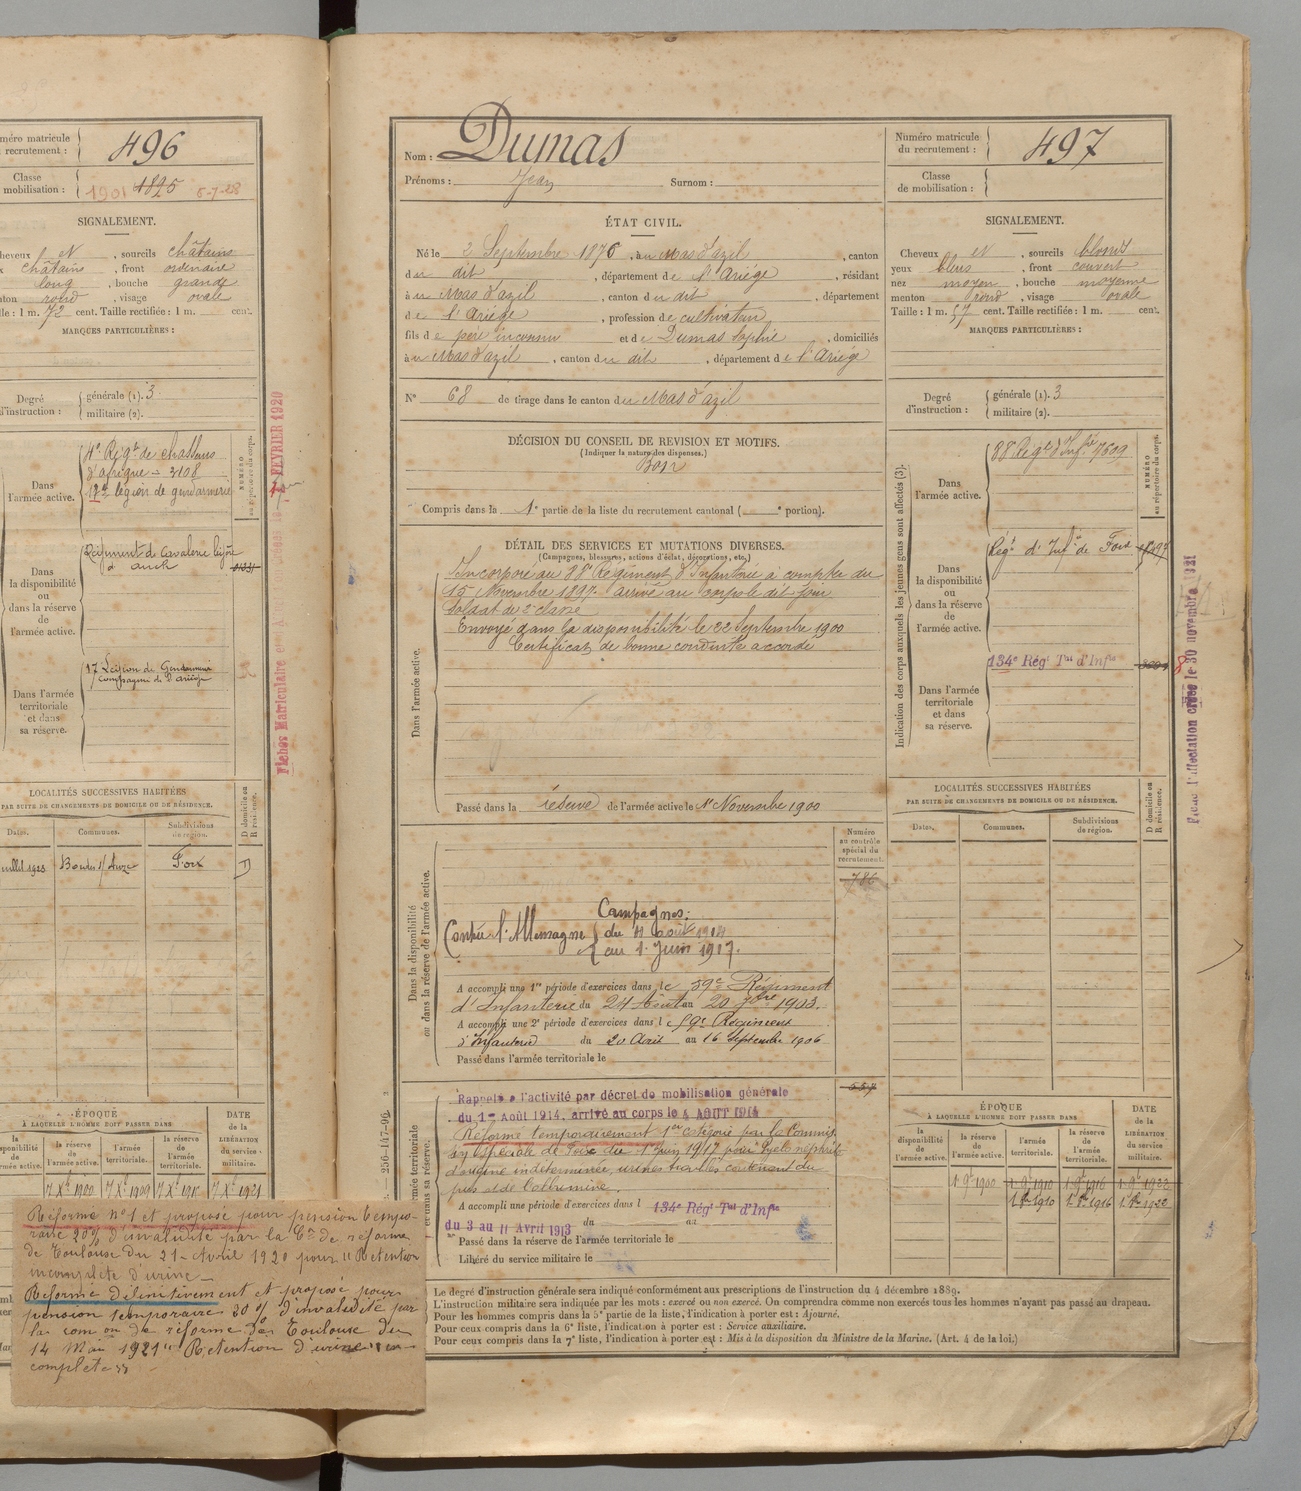 méro matricule
recrutement :
496
Classe
mobilisation :
1901 1895 5-7-28
SIGNALEMENT.
heveux et , sourcils châtains
x châtains , front ordinaire
long , bouche grande
nton rond , visage ovale
lle : 1 m. 72 cent. Taille rectifiée : 1 m. cent.
MARQUES PARTICULIÈRES :
Degré
d'instruction :
générale (1). 3
militaire (2).
Dans
l'armée active.
4e Régt de chasseurs
d'afrique = 3108
17e légion de gendarmerie
NUMÉRO
au répertoire du corps.
Dans
la disponibilité
ou
dans la réserve
de
l'armée active.
Régiment de cavalerie légère
d' auch
Dans l'armée
territoriale
et dans
sa réserve.
17 Légion de Gendarmerie
compagnie de l'ariège
FEVRIER 1920
Fiches Matriculaire et
LOCALITÉS SUCCESSIVES HABITÉES
PAR SUITE DE CHANGEMENTS DE DOMICILE OU DE RÉSIDENCE.
Dates.
Communes.
Subdivisions
de région.
D domicile ou
R résidence.
uillet 1923
Foix
D
ÉPOQUE
À LAQUELLE L'HOMME DOIT PASSER DANS
DATE
de la
LIBÉRATION
du service
militaire.
la réserve
de
l'armée active.
l'armée
territoriale.
la réserve
de
l'armée
territoriale.
7 Xe 1900 7 Xe 1909 7 Xe 1915 7 Xe 1921
Réforme n° 1 et proposé pour pension tempo-
raire 20% d'invalidité par la Con de réforme
de Toulouse du 21 - Avril 1920 pour " Rétention
incomplète d'urine -
Réformé définitivement et proposé pour
pension temporaire 30 % d'invalidité par
la com on de réforme de Toulouse du
14 Mai 1921 " Rétention d'urine in-
complète "
Nom : Dumas
Prénoms : Jean Surnom :
ÉTAT CIVIL.
Né le 2 Septembre 1876 , au Mas d'azil , canton
du dit , département de l'Ariège , résidant
à u Mas d'azil , canton du dit , département
de l'Ariège , profession de cultivateur
fils de père inconnu et de Dumas Sophie , domiciliés
à u Mas d'azil , canton du dit , département de l'Ariège
N° 68 de tirage dans le canton du Mas d'azil
DÉCISION DU CONSEIL DE REVISION ET MOTIFS.
(Indiquer la nature des dispenses.)
Bon
Compris dans la 1e partie de la liste du recrutement cantonal ( e portion).
DÉTAIL DES SERVICES ET MUTATIONS DIVERSES.
(Campagnes, blessures, actions d'éclat, décorations, etc.)
Dans l'armée active.
Incorporé au 88e Régiment d'Infanterie à compter du
15 Novembre 1897. arrivé au corps le dit jour
Soldat de 2e classe
Envoyé dans la disponibilité le 22 Septembre 1900
Certificat de bonne conduite accordé
Passé dans la réserve de l'armée active le 1er Novembre 1900
Dans la disponibilité
ou dans la réserve de l'armée active.
Numéro
au contrôle
spécial du
recrutement.
786
Campagnes :
Contre l'Allemagne du 4 août 1914
au 1. Juin 1917.
A accompli une 1re période d'exercices dans le 59e Régiment
d'Infanterie du 24 Août au 20 7bre 1903.
A accompli une 2e période d'exercices dans le 59e Régiment
d'Infanterie du 20 Août au 16 Septembre 1906
Passé dans l'armée territoriale le
armée territoriale
et dans sa réserve.
Rappelé à l'activité par décret de mobilisation générale
du 1er Août 1914, arrivé au corps le 4 AOUT 1914
Réformé temporairement 1ère catégorie par la Commis
ion Spéciale de Foix du 1er Juin 1917 pour Pyélo néphrite
d'origine indéterminée, urines troubles contenant du
pus et de l'albumine.
A accompli une période d'exercices dans l 134e Régt Tal d'Infie
du 3 au 11 Avril 1913 du au
Passé dans la réserve de l'armée territoriale le
Libéré du service militaire le
—256-147-96.
Le degré d'instruction générale sera indiqué conformément aux prescriptions de l'instruction du 4 décembre 1889.
L'instruction militaire sera indiquée par les mots : exercé ou non exercé. On comprendra comme non exercés tous les hommes n'ayant pas passé au drapeau.
Pour les hommes compris dans la 5e partie de la liste, l'indication à porter est : Ajourné.
Pour ceux compris dans la 6e liste, l'indication à porter est : Service auxiliaire.
Pour ceux compris dans la 7e liste, l'indication à porter est : Mis à la disposition du Ministre de la Marine. (Art. 4 de la loi.)
Numéro matricule
du recrutement :
497
Classe
de mobilisation :
SIGNALEMENT.
Cheveux et , sourcils blonds
yeux bleus , front couvert
nez moyen , bouche moyenne
menton rond , visage ovale
Taille : 1 m. 57 cent. Taille rectifiée : 1 m. cent.
MARQUES PARTICULIÈRES :
Degré
d'instruction :
générale (1). 3
militaire (2).
Indication des corps auxquels les jeunes gens sont affectés (3).
Dans
l'armée active.
88e Régt d'Infrie 7609
NUMÉRO
au répertoire du corps.
Dans
la disponibilité
ou
dans la réserve
de
l'armée active.
Régt d'Infie de Foix
Dans l'armée
territoriale
et dans
sa réserve.
134e Régt Tal d'Infie
Fiche d'affectation créée le 30 novembre 1921
LOCALITÉS SUCCESSIVES HABITÉES
PAR SUITE DE CHANGEMENTS DE DOMICILE OU DE RÉSIDENCE.
Dates.
Communes.
Subdivisions
de région.
D domicile ou
R résidence.
ÉPOQUE
À LAQUELLE L'HOMME DOIT PASSER DANS
DATE
de la
LIBÉRATION
du service
militaire.
la
disponibilité
de
l'armée active.
la réserve
de
l'armée active.
l'armée
territoriale.
la réserve
de
l'armée
territoriale.
1 9e 1900 1 9e 1910 1 9e 1916 1 9e 1922
1. 8e 1910 1. 8e 1916 1. 8e 1922